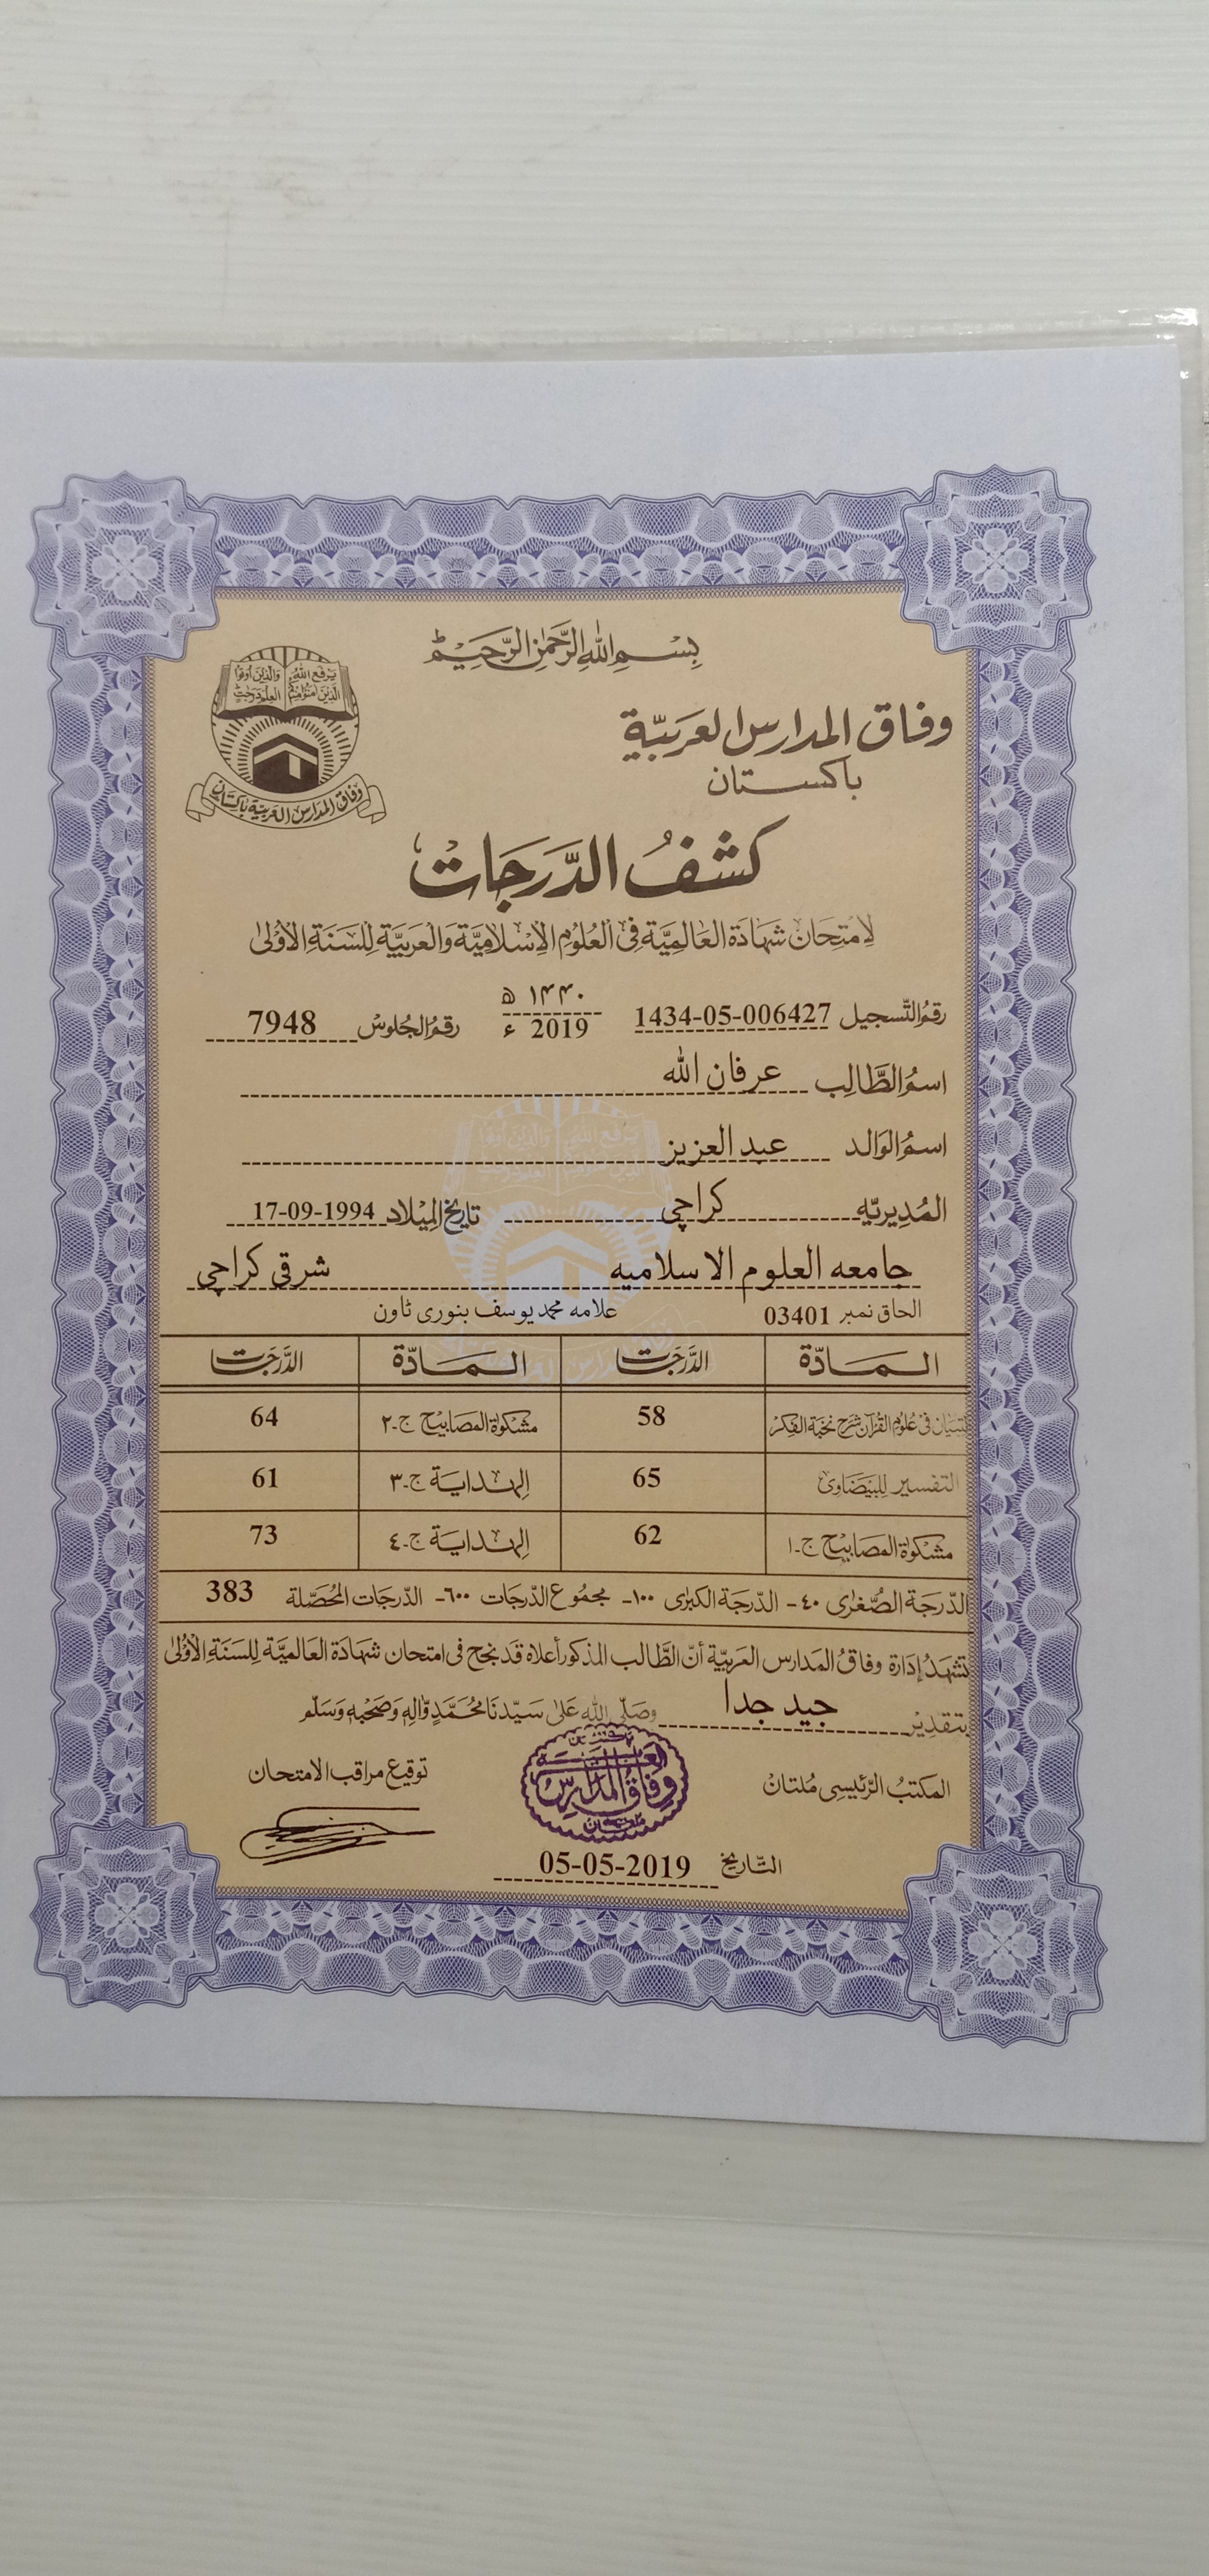 بِسْمِ اللهِ الرَّحْمٰنِ الرَّحِيْمِ
يَرفَعِ اللهُ الَّذِينَ اٰمَنُوْامِنْكُمْ
وَالَّذِينَ اُوتُوا العِلْمَ دَرَجٰتٍ
وفاق المدارس العربيّة
باكستان
وفاق المدارس العربية باكستان
كشفُ الدَّرَجَات
لِامتِحَان شهَادَة العَالِمِيَّة فِى العُلُومِ الإسْلَامِيَّة وَالعَرَبِيَّة لِلسَنَةِ الأُوْلىٰ
رقمُ التّسجيل 1434-05-006427 ۱۴۴۰ ھ 2019 ء رقمُ الجُلوس 7948
اسمُ الطَّالِب عرفان الله
اسمُ الوَالد عبد العزيز
المُدِيريّه كراچی تاريخُ المِيْلاد 17-09-1994
جامعه العلوم الاسلاميه شرقی کراچی
الحاق نمبر 03401 علامه محمد یوسف بنوری ٹاون
المَادّة الدَّرَجَات المَادّة الدَّرَجَات
التبيان فى عُلُوم القُرآن شَرح نخبَة الفِكَر 58 مشكوٰة المصَابيح ج-٢ 64
التفسير لِلبَيضَاوى 65 الهِدَاية ج-٣ 61
مشكوٰة المصَابيح ج-١ 62 الهِدَاية ج-٤ 73
الدّرجة الصُّغرىٰ ٤٠- الدّرجة الكبرىٰ ١٠٠- مجمُوع الدّرجات ٦٠٠- الدّرجات المُحَصَّلة 383
تشهَدُ إدَارة وفاقُ المَدَارس العَرَبيّة أنّ الطَّالب المذكور أعلاه قَد نجح فى امتحان شهَادَة العَالميَّة لِلسَنَةِ الأوْلىٰ
بتقدِير جيد جدا وصَلّى الله عَلىٰ سَيّدنَا مُحَمَّدٍ وَّاٰلِهٖ وَصَحْبِهٖ وَسَلّم
المكتبُ الرَّئيسِى مُلتان توقيع مراقب الامتحان
وفاق المدارس العربية
ملتان
التّاريخ 05-05-2019